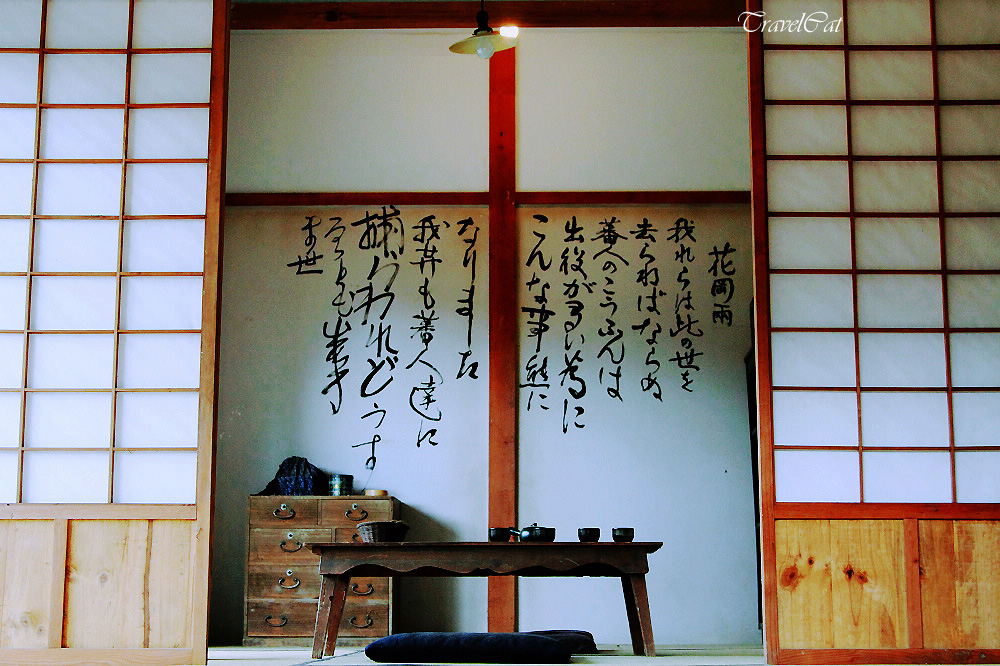 TravelCat
花岡兩
我れらは此の世を
去らねばならぬ
蕃人のこうふんは
出役が多い為に
こんな事態に
なりました
我等も蕃人達に
捕らわれどうす
ることも出来
ま世